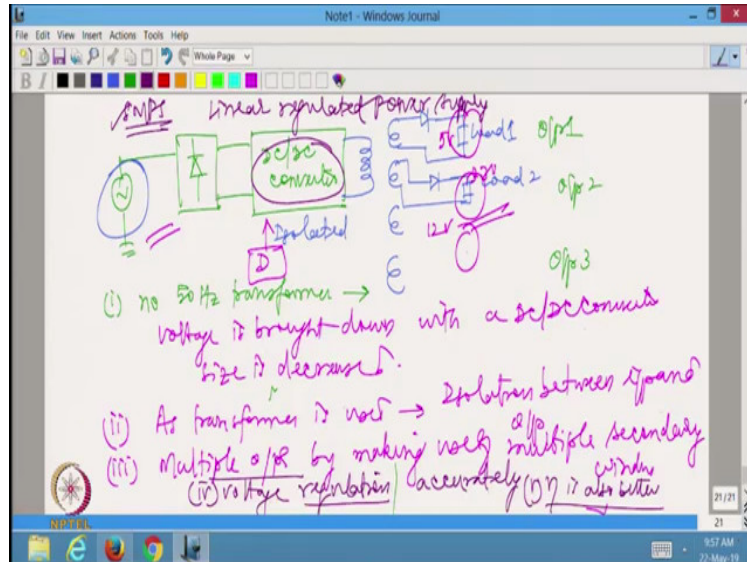 Note1 - Windows Journal
File Edit View Insert Actions Tools Help
Whole Page
B I
SMPS Lineal regulated power supply
DC/DC
converter
5V
Load 1
O/p 1
Load 2
O/p 2
12V
Isolated
D
O/p 3
(i) no 50 Hz transformer →
voltage is brought down with a DC/DC converter
size is decreased.
(ii) As transformer is used → Isolation between i/p and
o/p
(iii) Multiple o/p by making multiple secondary
(iv) voltage regulation accurately (v) η is also better
NPTEL
21/21
21
9:57 AM
22-May-19